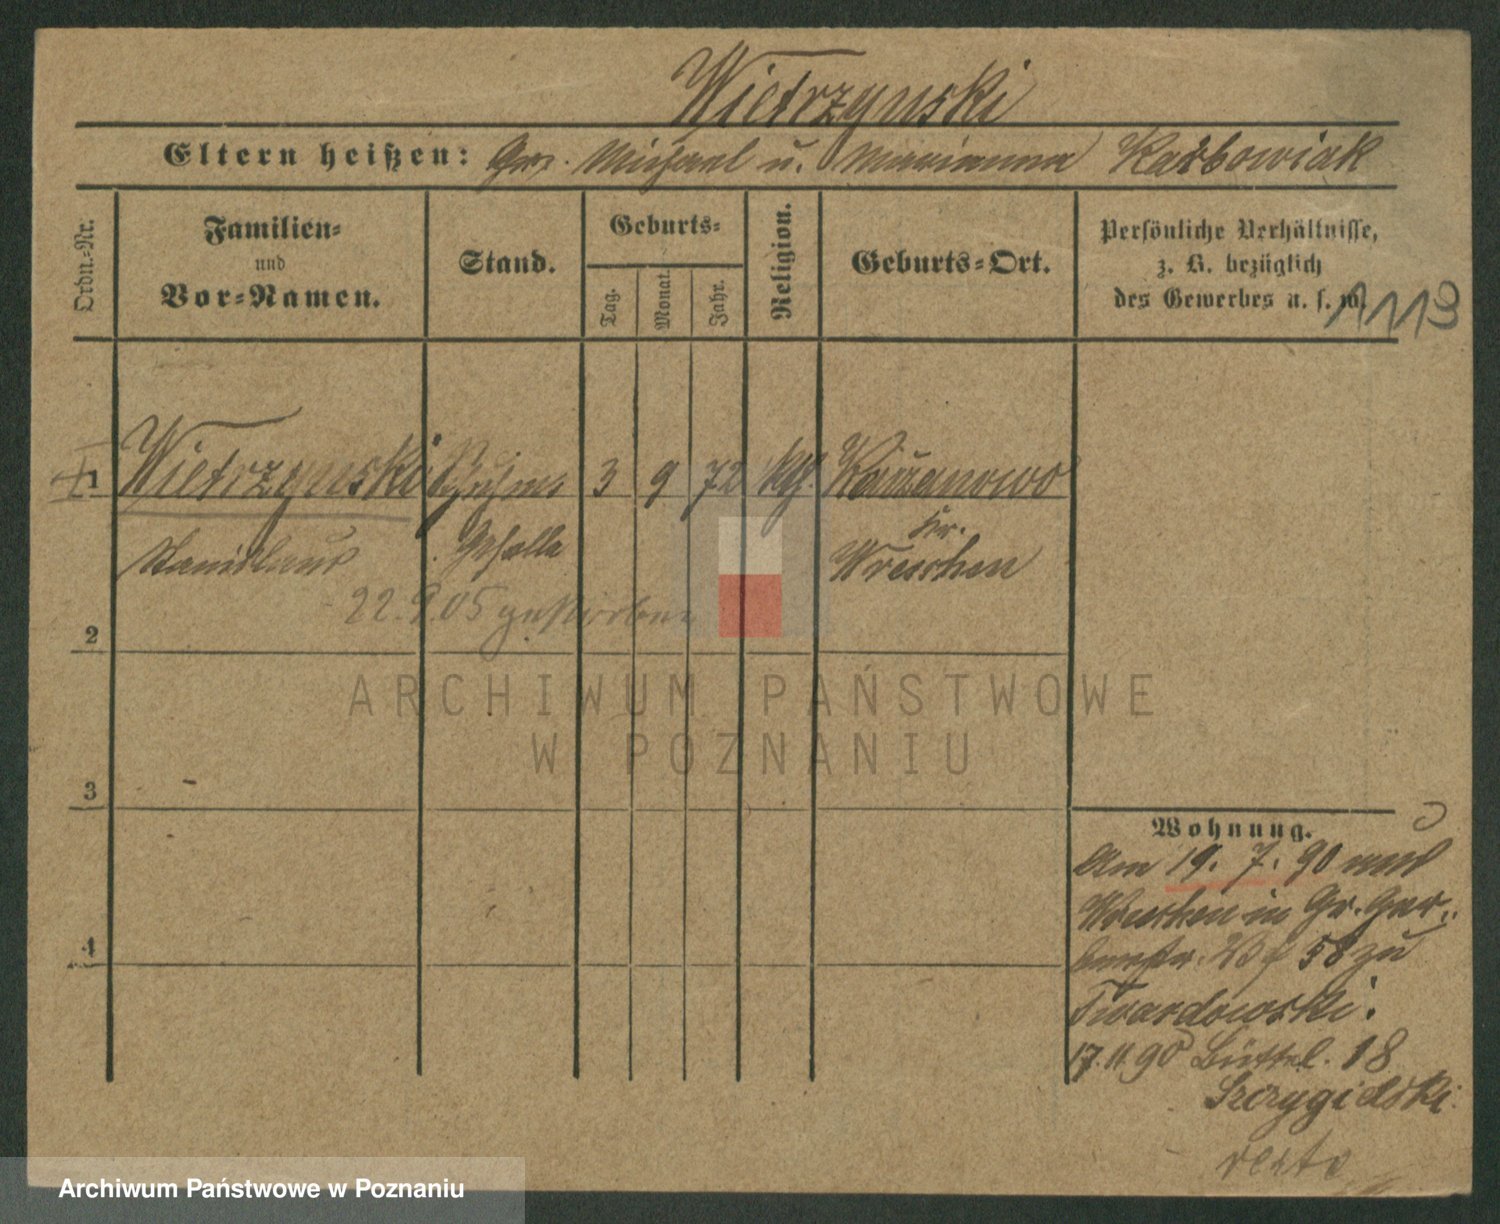 Wietrzynski
Eltern heißen: Gw. Michael u. Marianna Karbowiak
Ordn.-Nr.
Familien-
und
Vor-Namen.
Stand.
Geburts-
Tag.
Monat.
Jahr.
Religion.
Geburts-Ort.
Persönliche Verhältnisse,
z. B. bezüglich
des Gewerbes u. s. w.
1113
1 Wietrzynski 3 9 72 kth. Kaczanowo
Stanislaus Geselle Kr.
Wreschen
22.9.05 gestorben
2
3
4
Wohnung.
Am 19. 7. 90 aus
Wreschen in Gr. Ger-
berstr. 58 zu
Twardowski.
17.11.90 Büttel. 18
Szczygielski
verte
ARCHIWUM PAŃSTWOWE
W POZNANIU
Archiwum Państwowe w Poznaniu